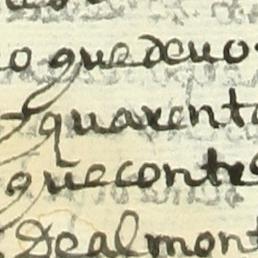 o quedeuo
quarenta
quecontre
Dealmont